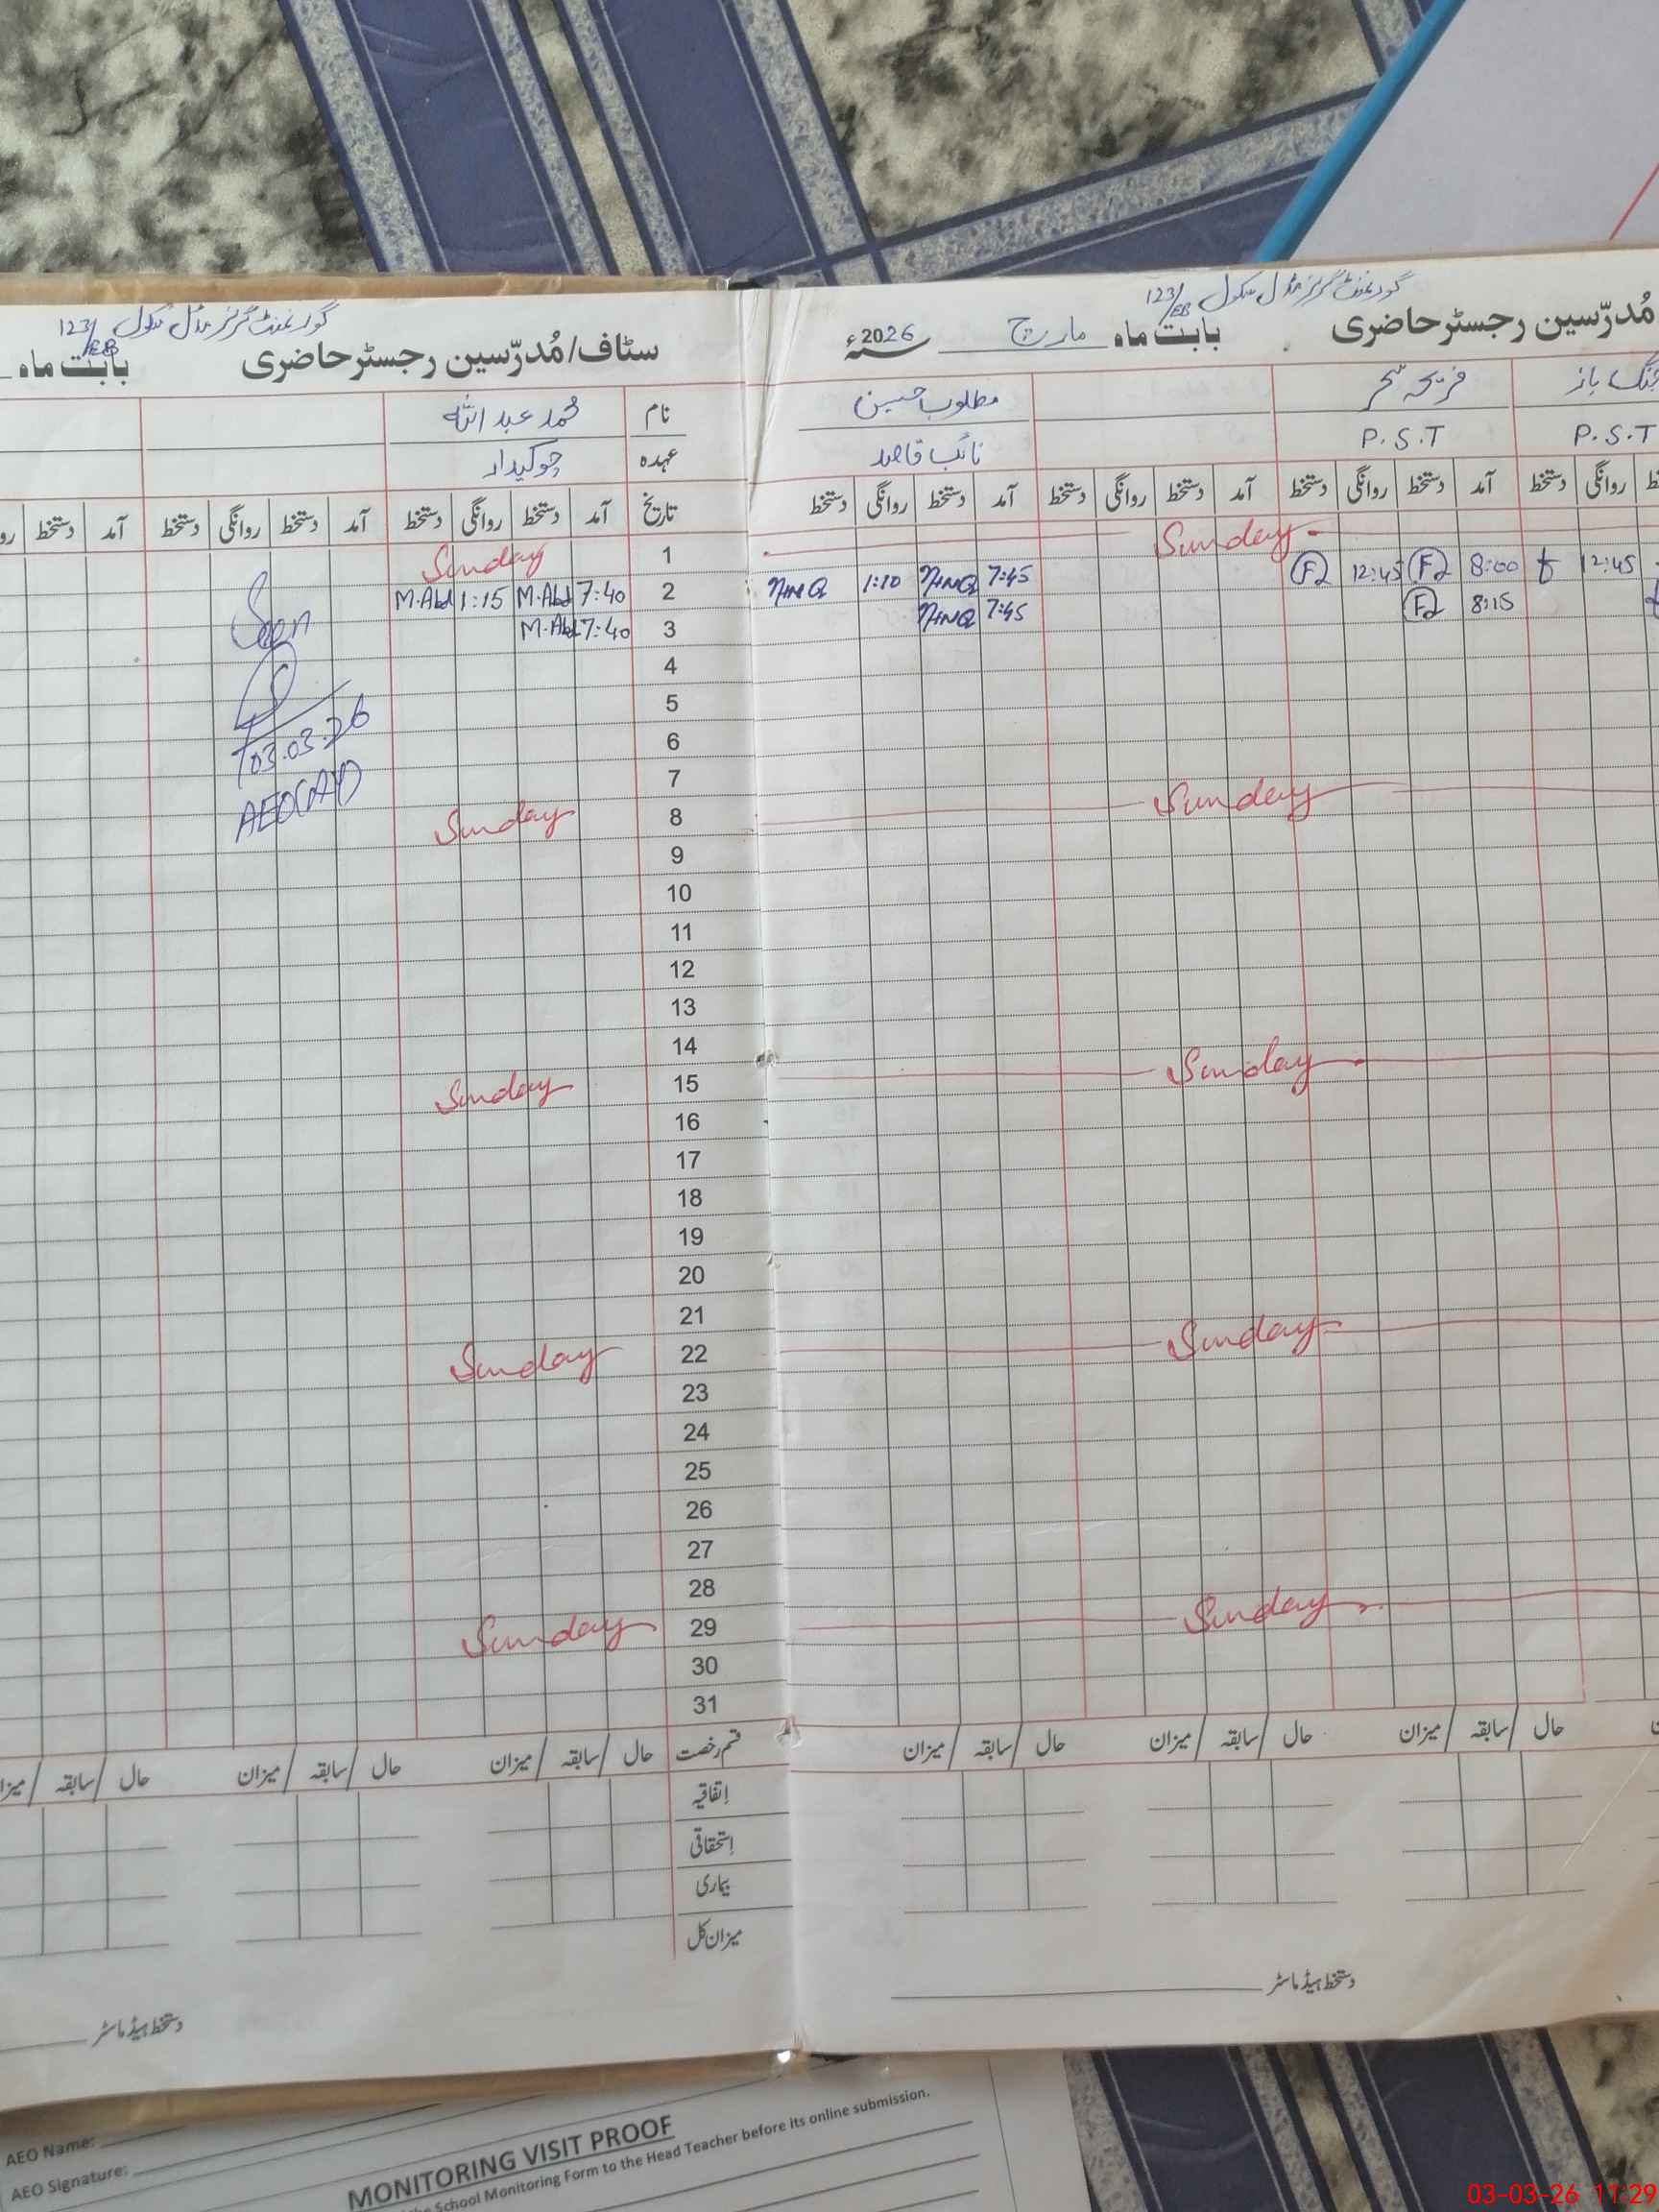 گورنمنٹ گرلز مڈل سکول 123/EB
مُدرّسین رجسٹر حاضری بابت ماہ مارچ سنہ 2026ء
فریحہ سحر مطلوب حسین
P.S.T P.S.T نائب قاصد
دستخط روانگی دستخط آمد دستخط روانگی دستخط آمد دستخط روانگی دستخط آمد دستخط روانگی
Sunday
12:45 8:00 12:45 7:45 1:10
8:15 7:45
Sunday
Sunday
Sunday
Sunday
حال / سابقہ / میزان حال / سابقہ / میزان حال / سابقہ / میزان
دستخط ہیڈ ماسٹر
گورنمنٹ گرلز مڈل سکول 123/EB
سٹاف/مُدرّسین رجسٹر حاضری بابت ماہ
نام محمد عبداللہ
عہدہ چوکیدار
تاریخ آمد دستخط روانگی دستخط آمد دستخط روانگی دستخط آمد دستخط
1 Sunday
2 7:40 M.Abd 1:15 M.Abd
3 7:40 M.Abd
Seen
4
5
6
03.03.26
7
AEO
8 Sunday
9
10
11
12
13
14
15 Sunday
16
17
18
19
20
21
22 Sunday
23
24
25
26
27
28
29 Sunday
30
31
قسم رخصت حال / سابقہ / میزان حال / سابقہ / میزان حال / سابقہ / میزان
اتفاقیہ
استحقاقی
بیماری
میزان کل
دستخط ہیڈ ماسٹر
AEO Name:
AEO Signature:
MONITORING VISIT PROOF
School Monitoring Form to the Head Teacher before its online submission.
03-03-26 11:29